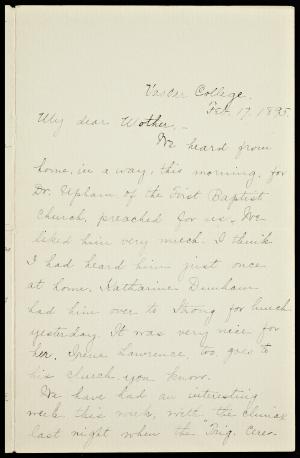 Vassar College.
Feb. 17, 1895.
My dear Mother,-
We heard from
home, in a way, this morning, for
Dr. Upham of the First Baptist
Church, preached for us. We
liked him very much. I think
I had heard him just once
at home. Katharine Dunham
had him over to Strong for lunch
yesterday. It was very nice for
her. Irene Lawrence, too, goes to
his church you know.
We have had an interesting
week this week, with the climax
last night when the "Trig. Cere-